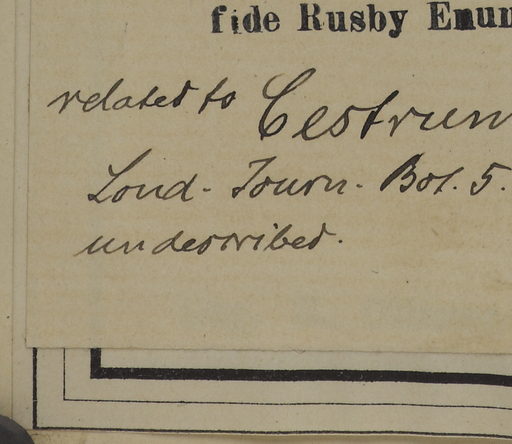 fide Rusby Enum
related to Cestrum
Lond. Journ. Bot. 5.
undescribed.